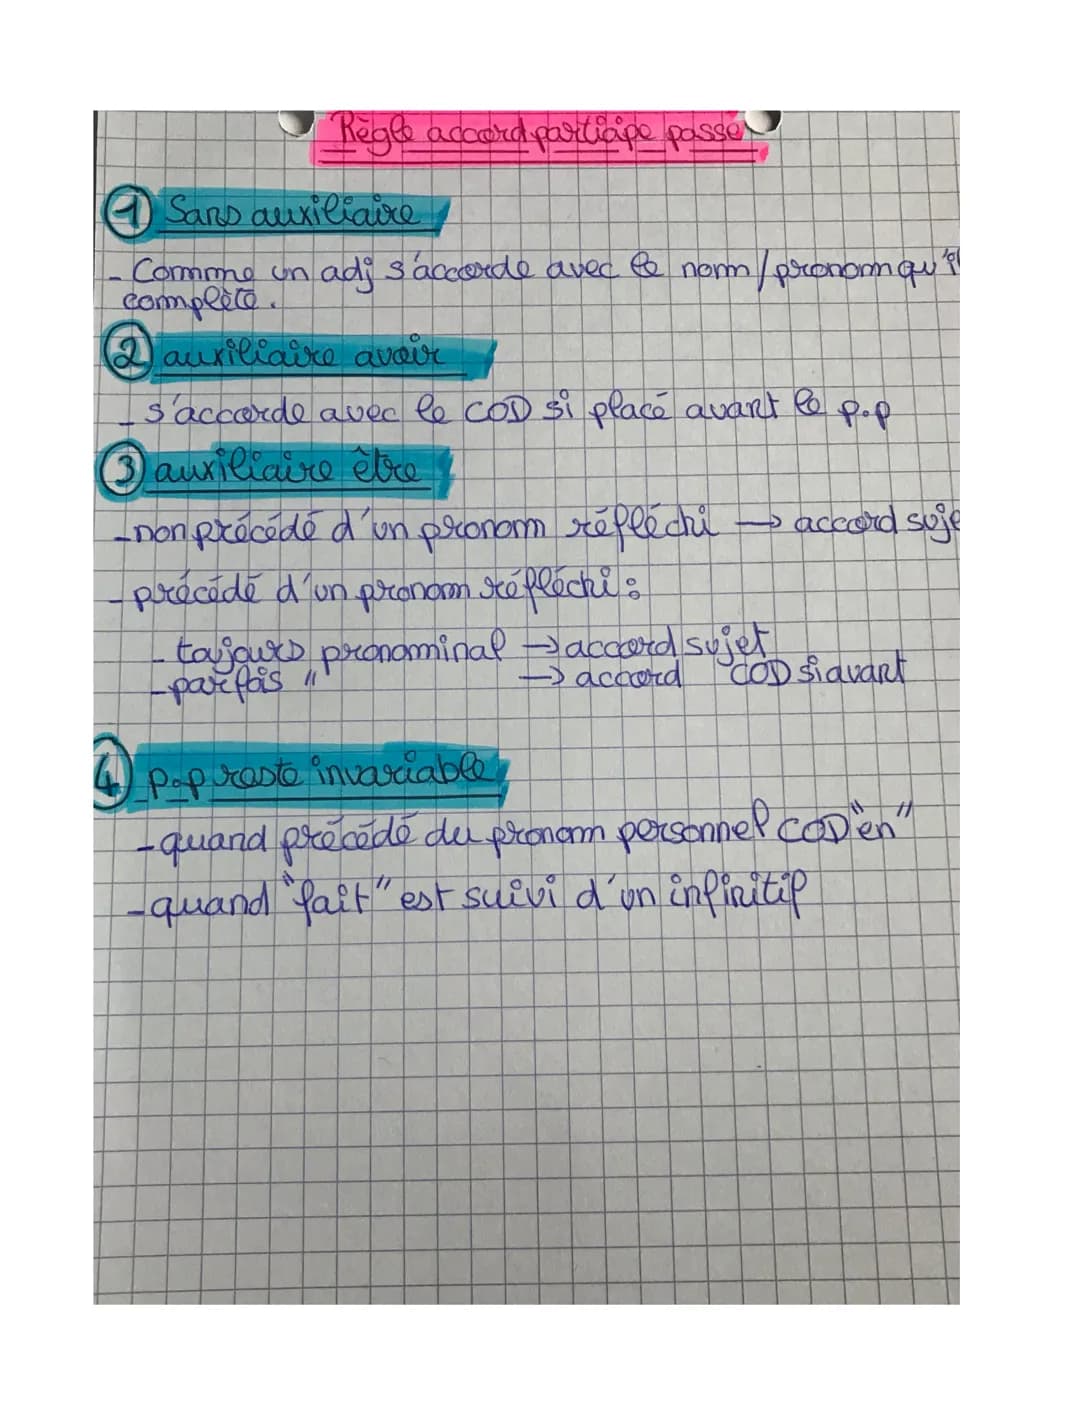 Règle accord participe passé
1 Sans auxiliaire
- Comme un adj s'accorde avec le nom/pronom qu'il
complète.
2 auxiliaire avoir
- s'accorde avec le COD si placé avant le p.p
3 auxiliaire être
- non précédé d'un pronom réfléchi → accord suje
- précédé d'un pronom réfléchi :
- toujours pronominal → accord sujet
- parfois " → accord COD si avant
4 p.p reste invariable
- quand précédé du pronom personnel COD "en"
- quand "fait" est suivi d'un infinitif